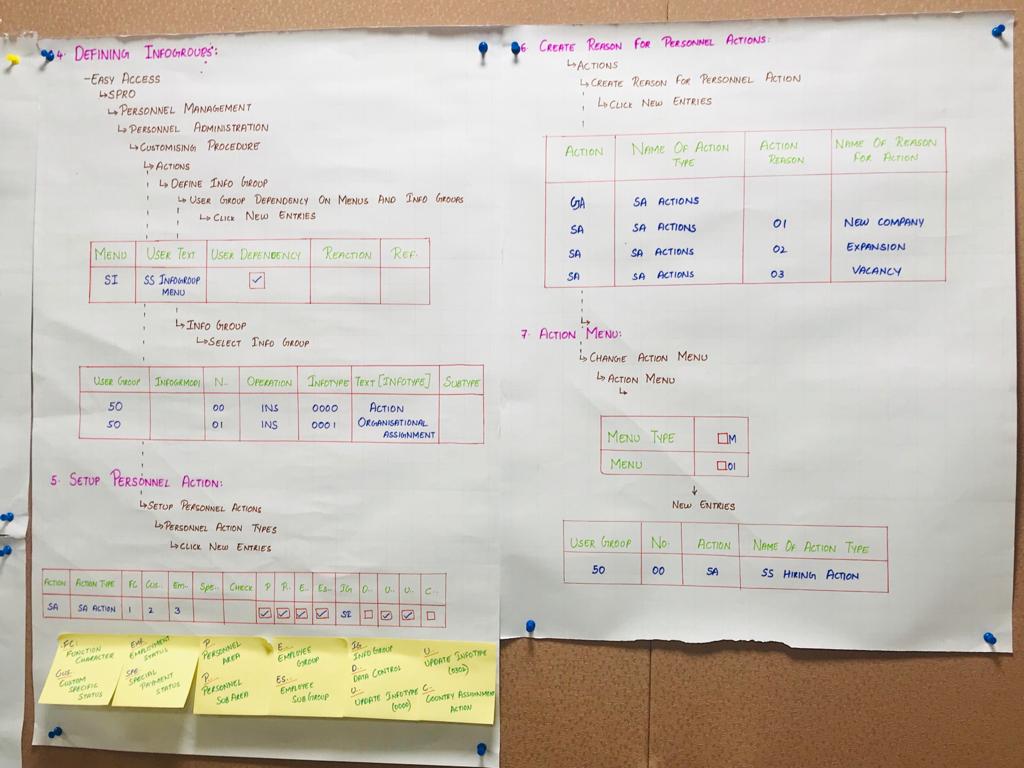 4. DEFINING INFOGROUPS:
-EASY ACCESS
↳SPRO
↳PERSONNEL MANAGEMENT
↳PERSONNEL ADMINISTRATION
↳CUSTOMISING PROCEDURE
↳ACTIONS
↳DEFINE INFO GROUP
↳USER GROUP DEPENDENCY ON MENUS AND INFO GROUPS
↳CLICK NEW ENTRIES
MENU USER TEXT USER DEPENDENCY REACTION REF.
SI SS INFOGROUP ☑
MENU
↳INFO GROUP
↳SELECT INFO GROUP
USER GROUP INFOGRMODI N.. OPERATION INFOTYPE TEXT [INFOTYPE] SUBTYPE
50 00 INS 0000 ACTION
50 01 INS 0001 ORGANISATIONAL
ASSIGNMENT
5. SETUP PERSONNEL ACTION:
↳SETUP PERSONNEL ACTIONS
↳PERSONNEL ACTION TYPES
↳CLICK NEW ENTRIES
ACTION ACTION TYPE FC CUS.. EM.. SPE.. CHECK P P.. E.. ES.. IG D.. U.. U.. C..
SA SA ACTION 1 2 3 ☑ ☑ ☑ ☑ SI ☐ ☑ ☑ ☐
FC:
FUNCTION
CHARACTER
CUS..
CUSTOM
SPECIFIC
STATUS
EM..
EMPLOYMENT
STATUS
SPE..
SPECIAL
PAYMENT
STATUS
P..
PERSONNEL
AREA
P..
PERSONNEL
SUB AREA
E..
EMPLOYEE
GROUP
ES..
EMPLOYEE
SUB GROUP
IG..
INFO GROUP
D..
DATA CONTROL
U..
UPDATE INFOTYPE
(0000)
U..
UPDATE INFOTYPE
(0302)
C..
COUNTRY ASSIGNMENT
ACTION
6. CREATE REASON FOR PERSONNEL ACTIONS:
↳ACTIONS
↳CREATE REASON FOR PERSONNEL ACTION
↳CLICK NEW ENTRIES
ACTION NAME OF ACTION TYPE ACTION REASON NAME OF REASON FOR ACTION
SA ACTIONS
SA SA ACTIONS 01 NEW COMPANY
SA SA ACTIONS 02 EXPANSION
SA SA ACTIONS 03 VACANCY
7. ACTION MENU:
↳CHANGE ACTION MENU
↳ACTION MENU
MENU TYPE ☐M
MENU ☐01
↓
NEW ENTRIES
USER GROUP NO. ACTION NAME OF ACTION TYPE
50 00 SA SS HIRING ACTION